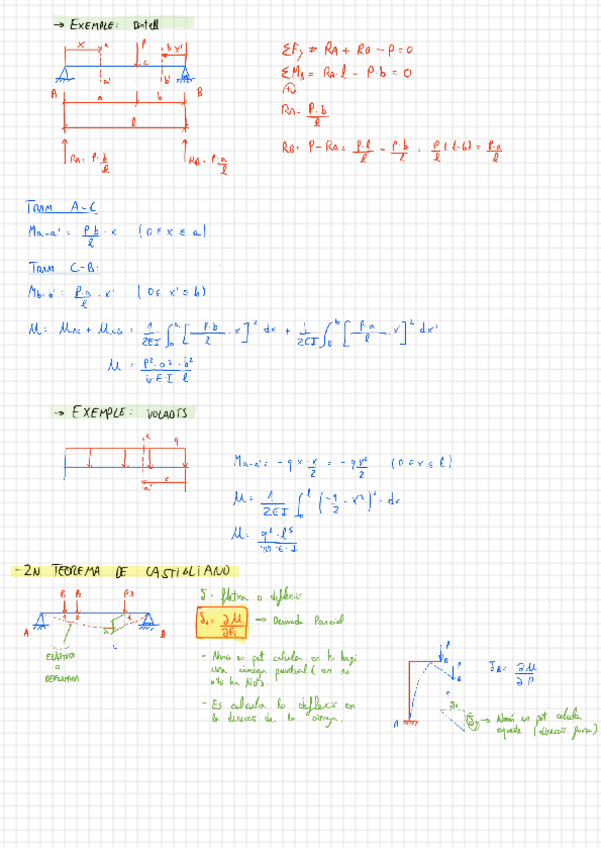 → EXEMPLE:
x a P b x'
c
a' b'
A a b B
l
RA = P·b/l RB = P·a/l
ΣFy ⇒ RA + RB - P = 0
ΣMB = RA·l - P·b = 0
(+)
RA = P·b/l
RB = P - RA = P·l/l - P·b/l = P/l (l-b) = P·a/l
TRAM A-C
Ma-a' = P·b/l · x (0 ≤ x ≤ a)
TRAM C-B:
Mb-b' = P·a/l · x' (0 ≤ x' ≤ b)
U = UAC + UCB = 1/2EI ∫₀ᵃ [P·b/l · x]² dx + 1/2EI ∫₀ᵇ [P·a/l · x']² dx'
U = P²·a²·b²/6·E·I·l
→ EXEMPLE: VOLADIS
a q
a' x
Ma-a' = -q·x·x/2 = -qx²/2 (0 ≤ x ≤ l)
U = 1/2EI ∫₀ˡ (-q/2 · x²)² · dx
U = q²·l⁵/40·E·I
- 2N TEOREMA DE CASTIGLIANO
P1 P2 P3
A B
ELÀSTICA
O
DEFORMADA
δ = fletxa o deflexió
δi = ∂U/∂Pi → Derivada Parcial
- Només es pot calcular on hi hagi
una càrrega puntual (on no
- Es calcula la deflexió en
la direcció de la càrrega.
P
B P
B'
A
δB = ∂U/∂P
→ Només es pot calcular
aquesta (direcció força)